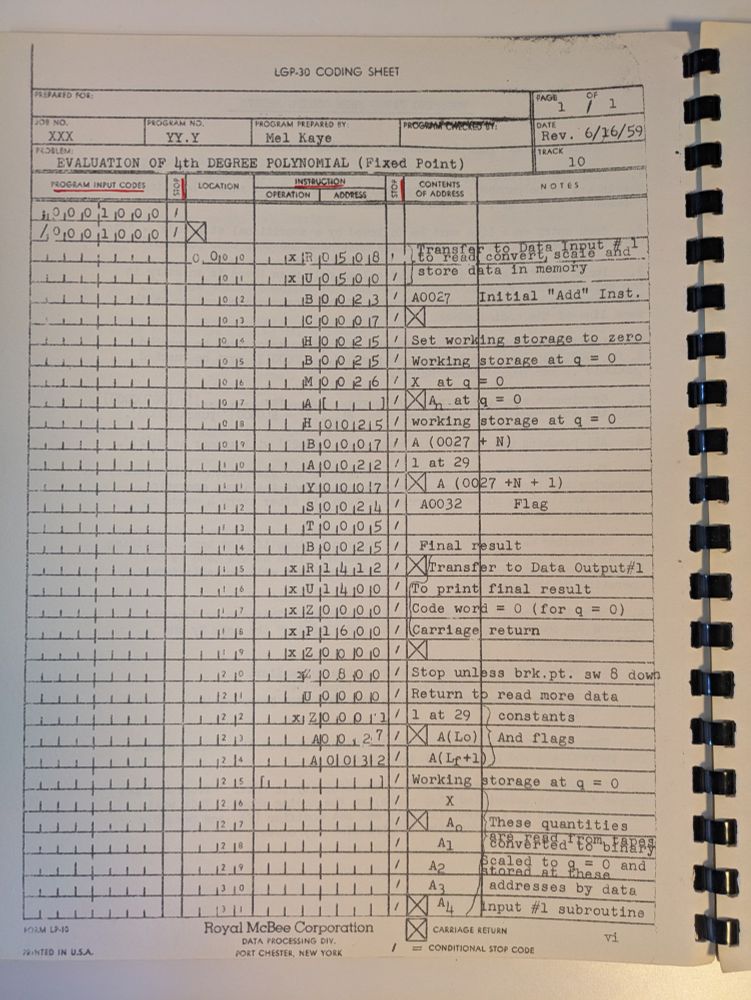 LGP-30 CODING SHEET
PREPARED FOR: PAGE 1 OF / 1
JOB NO. PROGRAM NO. PROGRAM PREPARED BY: PROGRAM CHECKED BY: DATE
XXX YY.Y Mel Kaye Rev. 6/16/59
PROBLEM: TRACK
EVALUATION OF 4th DEGREE POLYNOMIAL (Fixed Point) 10
PROGRAM INPUT CODES STOP LOCATION INSTRUCTION STOP CONTENTS OF ADDRESS NOTES
OPERATION ADDRESS
; 0 0 0 1 0 0 0 /
/ 0 0 0 1 0 0 0 /
0 0 0 0 x R 0 5 0 8 / Transfer to Data Input # 1
to read convert, scale and
0 1 x U 0 5 0 0 / store data in memory
0 2 B 0 0 2 3 / A0027 Initial "Add" Inst.
0 3 C 0 0 0 7 /
0 4 H 0 0 2 5 / Set working storage to zero
0 5 B 0 0 2 5 / Working storage at q = 0
0 6 M 0 0 2 6 / X at q = 0
0 7 A [ ] / An at q = 0
0 8 H 0 0 2 5 / working storage at q = 0
0 9 B 0 0 0 7 / A (0027 + N)
1 0 A 0 0 2 2 / 1 at 29
1 1 Y 0 0 0 7 / A (0027 +N + 1)
1 2 S 0 0 2 4 / A0032 Flag
1 3 T 0 0 0 5 /
1 4 B 0 0 2 5 / Final result
1 5 x R 1 4 1 2 / Transfer to Data Output#1
1 6 x U 1 4 0 0 / To print final result
1 7 x Z 0 0 0 0 / Code word = 0 (for q = 0)
1 8 x P 1 6 0 0 / Carriage return
1 9 x Z 0 0 0 0 /
2 0 x Z 0 8 0 0 / Stop unless brk.pt. sw 8 down
2 1 U 0 0 0 0 / Return to read more data
2 2 x Z 0 0 0 1 / 1 at 29 constants
2 3 A 0 0 2 7 / A(Lo) And flags
2 4 A 0 0 3 2 / A(Lf+1)
2 5 [ ] / Working storage at q = 0
2 6 / X
2 7 / Ao These quantities
are read from tapes
2 8 / A1 converted to binary
2 9 / A2 Scaled to q = 0 and
stored at these
3 0 / A3 addresses by data
3 1 / A4 input #1 subroutine
FORM LP-10 Royal McBee Corporation CARRIAGE RETURN vi
DATA PROCESSING DIV.
PRINTED IN U.S.A. PORT CHESTER, NEW YORK / = CONDITIONAL STOP CODE